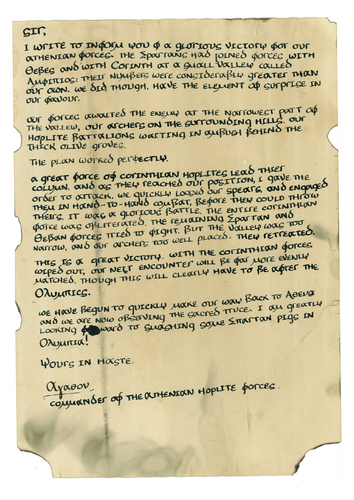 Sir,
I write to inform you of a glorious victory for our
Athenian forces. The Spartans had joined forces with
Thebes and with Corinth at a small valley called
their numbers were considerably greater than
our own. We did though, have the element of surprise in
our favour.
Our forces awaited the enemy at the narrowest part of
the valley, our archers on the surrounding hills, our
hoplite battalions waiting in ambush behind the
thick olive groves.
The plan worked perfectly.
A great force of Corinthian hoplites lead their
column, and as they reached our position, I gave the
order to attack. We quickly our spears, and engaged
them in hand-to-hand combat, before they could throw
theirs. It was a glorious battle. The entire Corinthian
force was obliterated. The remaining Spartan and
Theban forces tried to fight. But the valley was too
narrow, and our archers too well placed. They retreated.
This is a great victory. With the Corinthian forces
wiped out, our next encounter will be far more evenly
matched, though this will clearly have to be after the
Olympics.
We have begun to quickly make our way back to Athena
and we are now observing the sacred truce. I am greatly
looking forward to smashing some Spartan pigs in
Olympia!
Yours in haste.
Αγαθον
Commander of the Athenian Hoplite Forces.